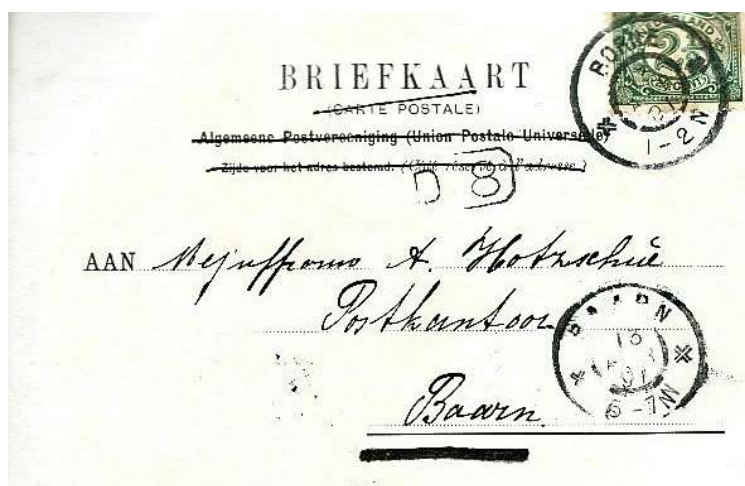 BRIEFKAART
(CARTE POSTALE)
Algemeene Postvereeniging (Union Postale Universelle)
Zijde voor het adres bestemd. (Côté réservé à l'adresse.)
D 8
1-2 N
AAN Mejuffrouw A. Hotzschué
Postkantoor
BAARN
13
01
6-7N
Baarn.